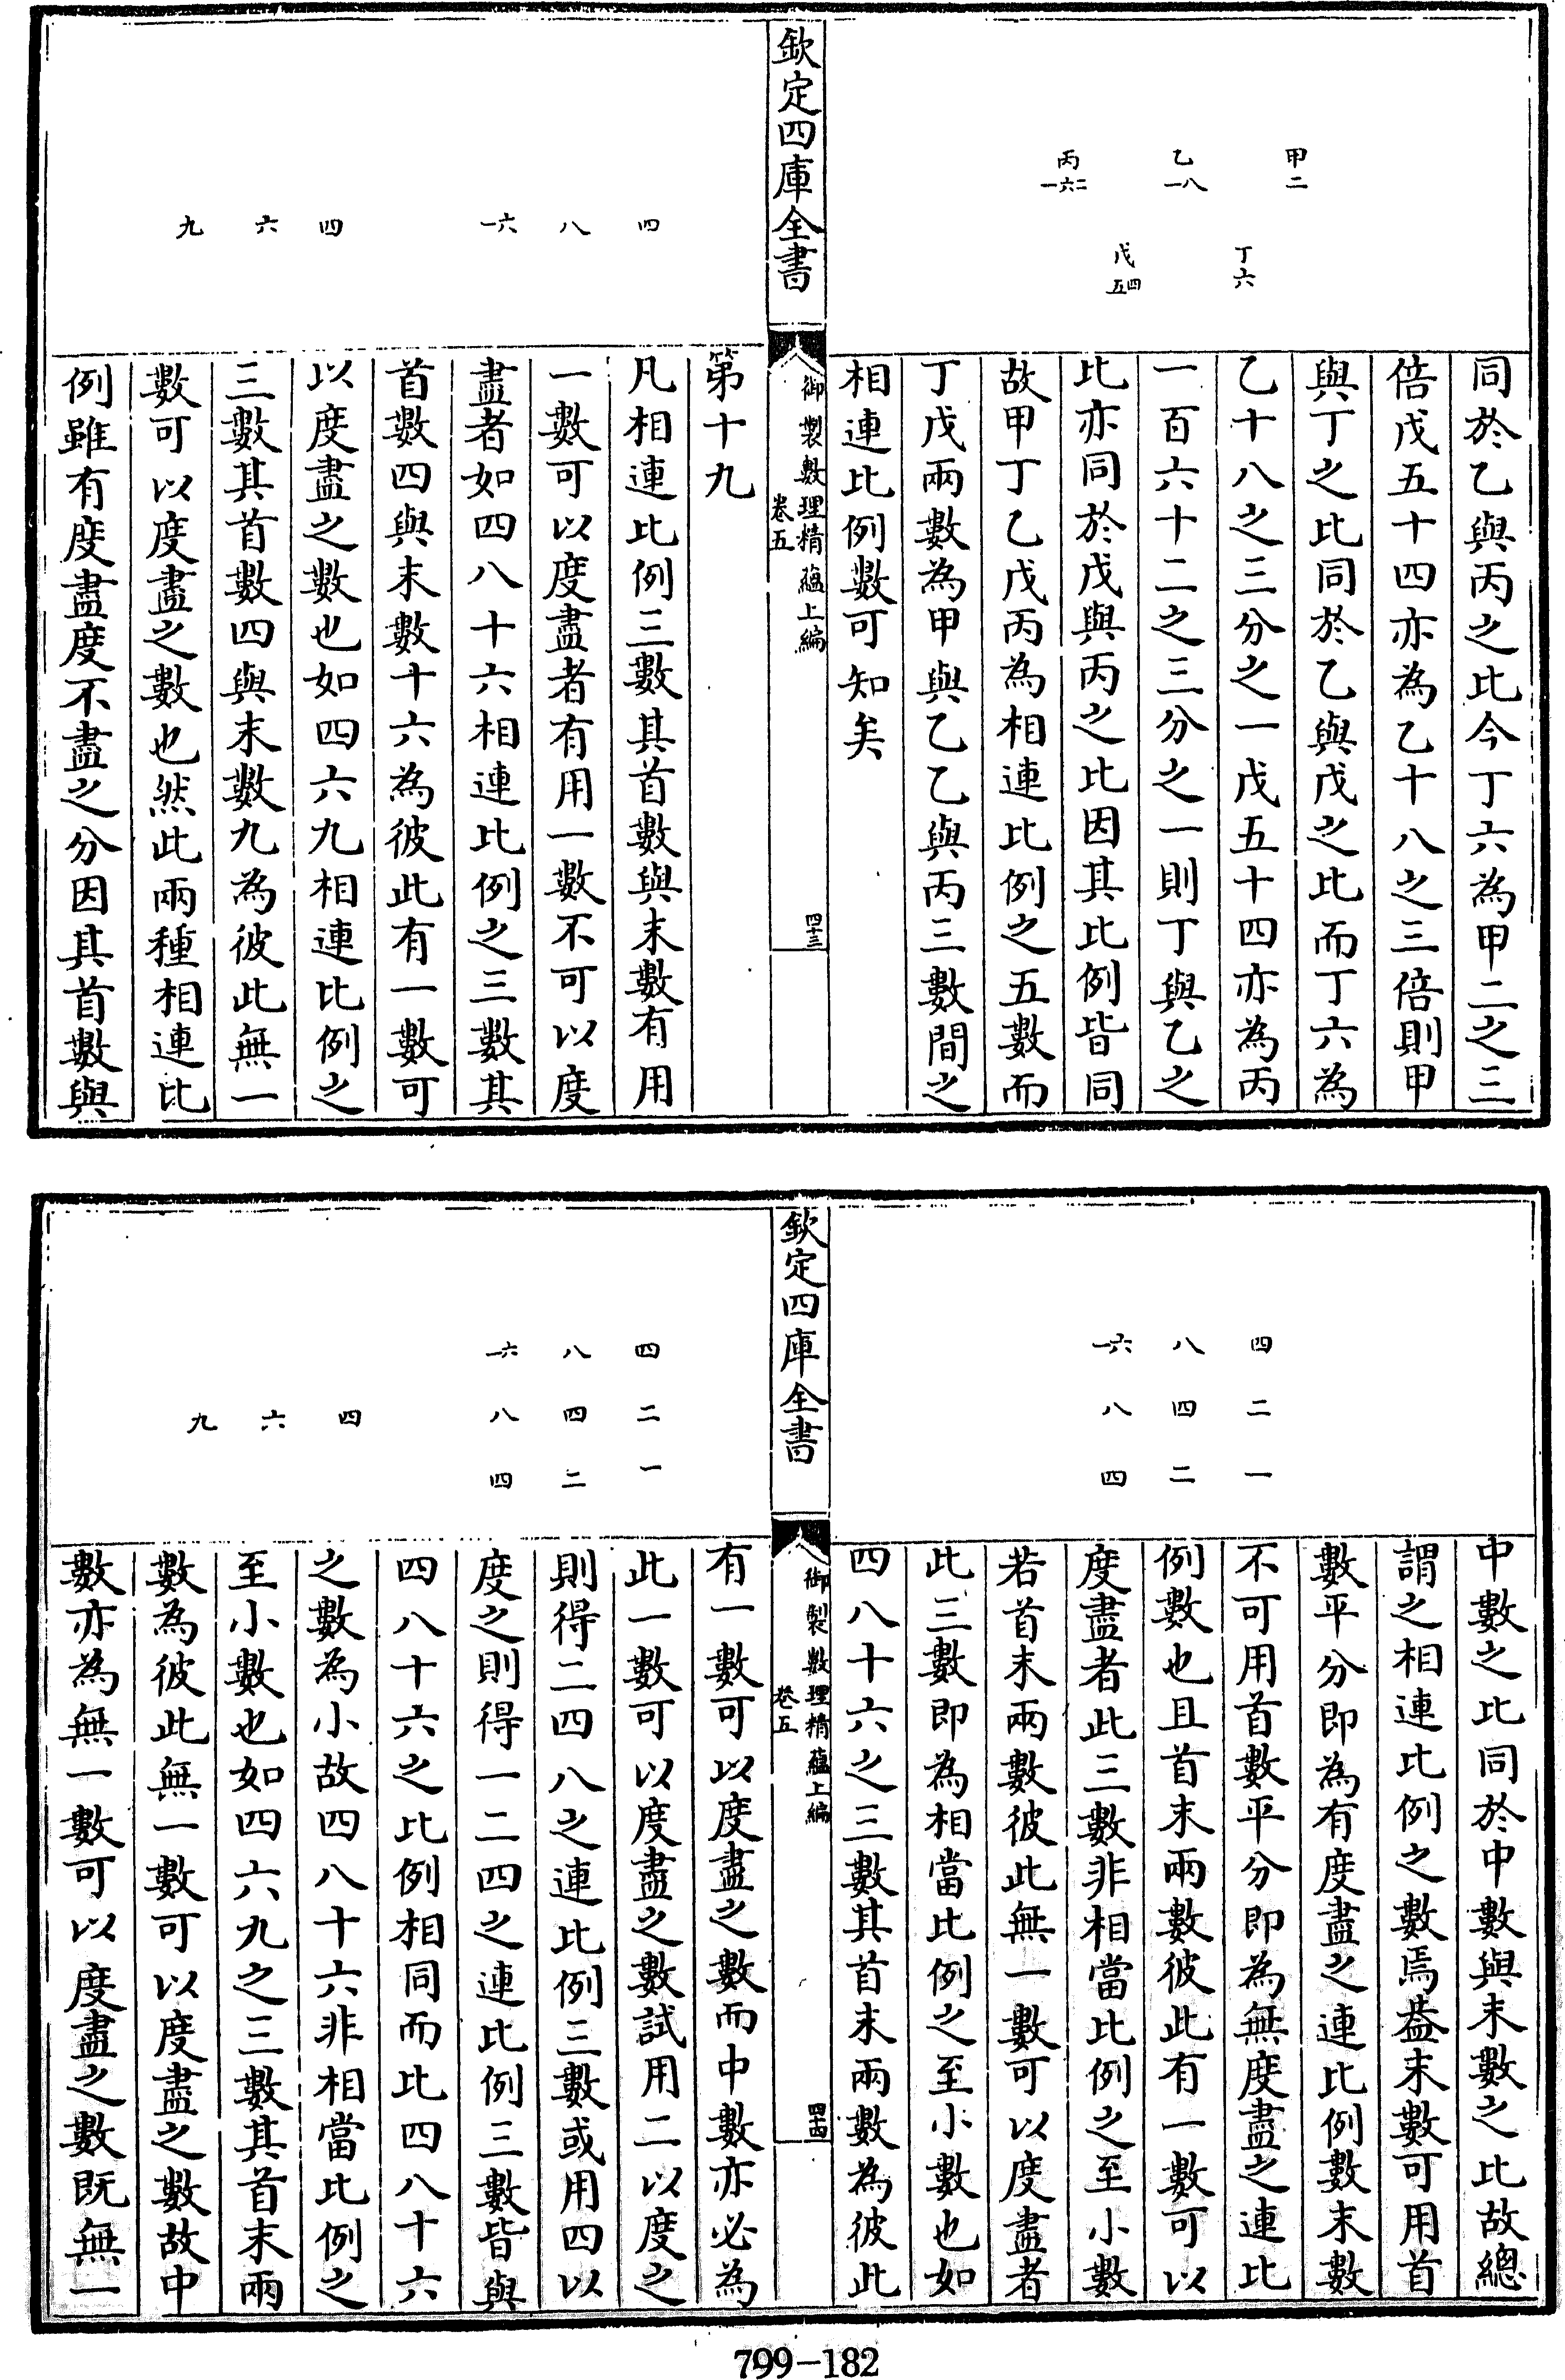 甲二
乙一八
丙一六二
丁六
戊五四
同於乙與丙之比今丁六為甲二之三
倍戊五十四亦為乙十八之三倍則甲
與丁之比同於乙與戊之比而丁六為
乙十八之三分之一戊五十四亦為丙
一百六十二之三分之一則丁與乙之
比亦同於戊與丙之比因其比例皆同
故甲丁乙戊丙為相連比例之五數而
丁戊兩數為甲與乙乙與丙三數間之
相連比例數可知矣
欽定四庫全書
御製數理精蘊上編
卷五
四十三
四 八 一六
四 六 九
第十九
凡相連比例三數其首數與末數有用
一數可以度盡者有用一數不可以度
盡者如四八十六相連比例之三數其
首數四與末數十六為彼此有一數可
以度盡之數也如四六九相連比例之
三數其首數四與末數九為彼此無一
數可以度盡之數也然此兩種相連比
例雖有度盡度不盡之分因其首數與
四 八 一六
二 四 八
一 二 四
中數之比同於中數與末數之比故總
謂之相連比例之數焉葢末數可用首
數平分即為有度盡之連比例數末數
不可用首數平分即為無度盡之連比
例數也且首末兩數彼此有一數可以
度盡者此三數非相當比例之至小數
若首末兩數彼此無一數可以度盡者
此三數即為相當比例之至小數也如
四八十六之三數其首末兩數為彼此
欽定四庫全書
御製數理精蘊上編
卷五
四十四
四 八 一六
二 四 八
一 二 四
四 六 九
有一數可以度盡之數而中數亦必為
此一數可以度盡之數試用二以度之
則得二四八之連比例三數或用四以
度之則得一二四之連比例三數皆與
四八十六之比例相同而比四八十六
之數為小故四八十六非相當比例之
至小數也如四六九之三數其首末兩
數為彼此無一數可以度盡之數故中
數亦為無一數可以度盡之數既無一
799-182